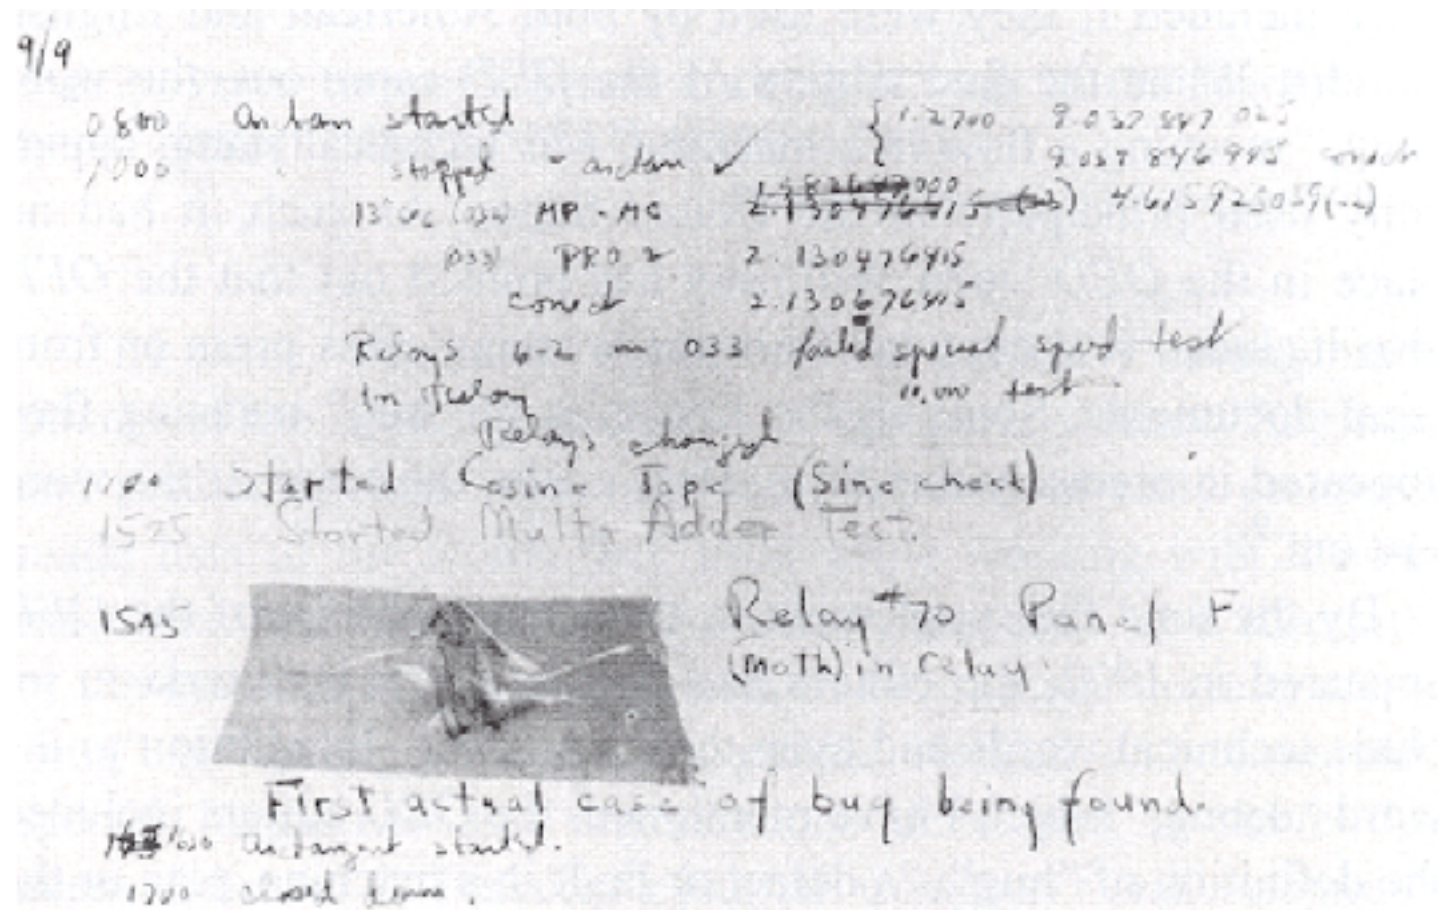 9/9
0800 antan started { 1.2700 9.037 847 025
1000 stopped - antan ✓ 9.037 846 995 correct
13uc (032) MP-MC 2.130476415 (-3) 4.615925059(-2)
033 PRO 2 2.130476415
correct 2.130676415
Relays 6-2 in 033 failed special speed test
In Relay 10,000 test
Relays changed
1100 Started Cosine Tape (Sine check)
1525 Started Multy Adder Test.
1545 Relay #70 Panel F
(moth) in relay.
First actual case of bug being found.
1630 antangent started.
1700 closed down.